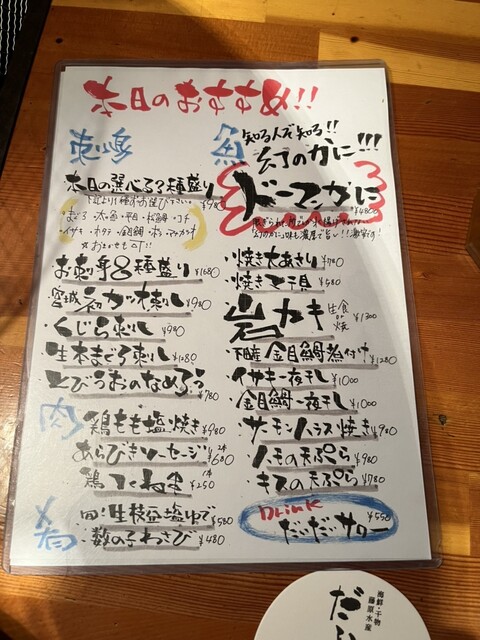 本日のおすすめ!!
本日の選べる3種盛り ¥980
お刺身8種盛り ¥1680
宮城 初カツオ刺し ¥980
くじら刺し ¥980
生本まぐろ刺し ¥1280
とびうおのなめろう ¥780
肉
鶏もも塩焼き ¥980
あらびきソーセージ 2本 ¥680
鶏つくね串 1本 ¥250
生枝豆塩ゆで ¥580
数の子わさび ¥480
魚
知る人ぞ知る!!
幻のかに!!!
ドーマンがに ¥4800
焼き大あさり ¥780
焼き エイ干貝 ¥580
岩カキ 生食 or 焼 ¥1300
下田産 金目鯛煮付け ¥1280
イサキ一夜干し ¥1000
金目鯛一夜干し ¥1000
サーモンハラス焼き ¥980
ハモの天ぷら ¥980
キスの天ぷら ¥780
Drink
だいだいサワー ¥550
海鮮・干物
藤原水産